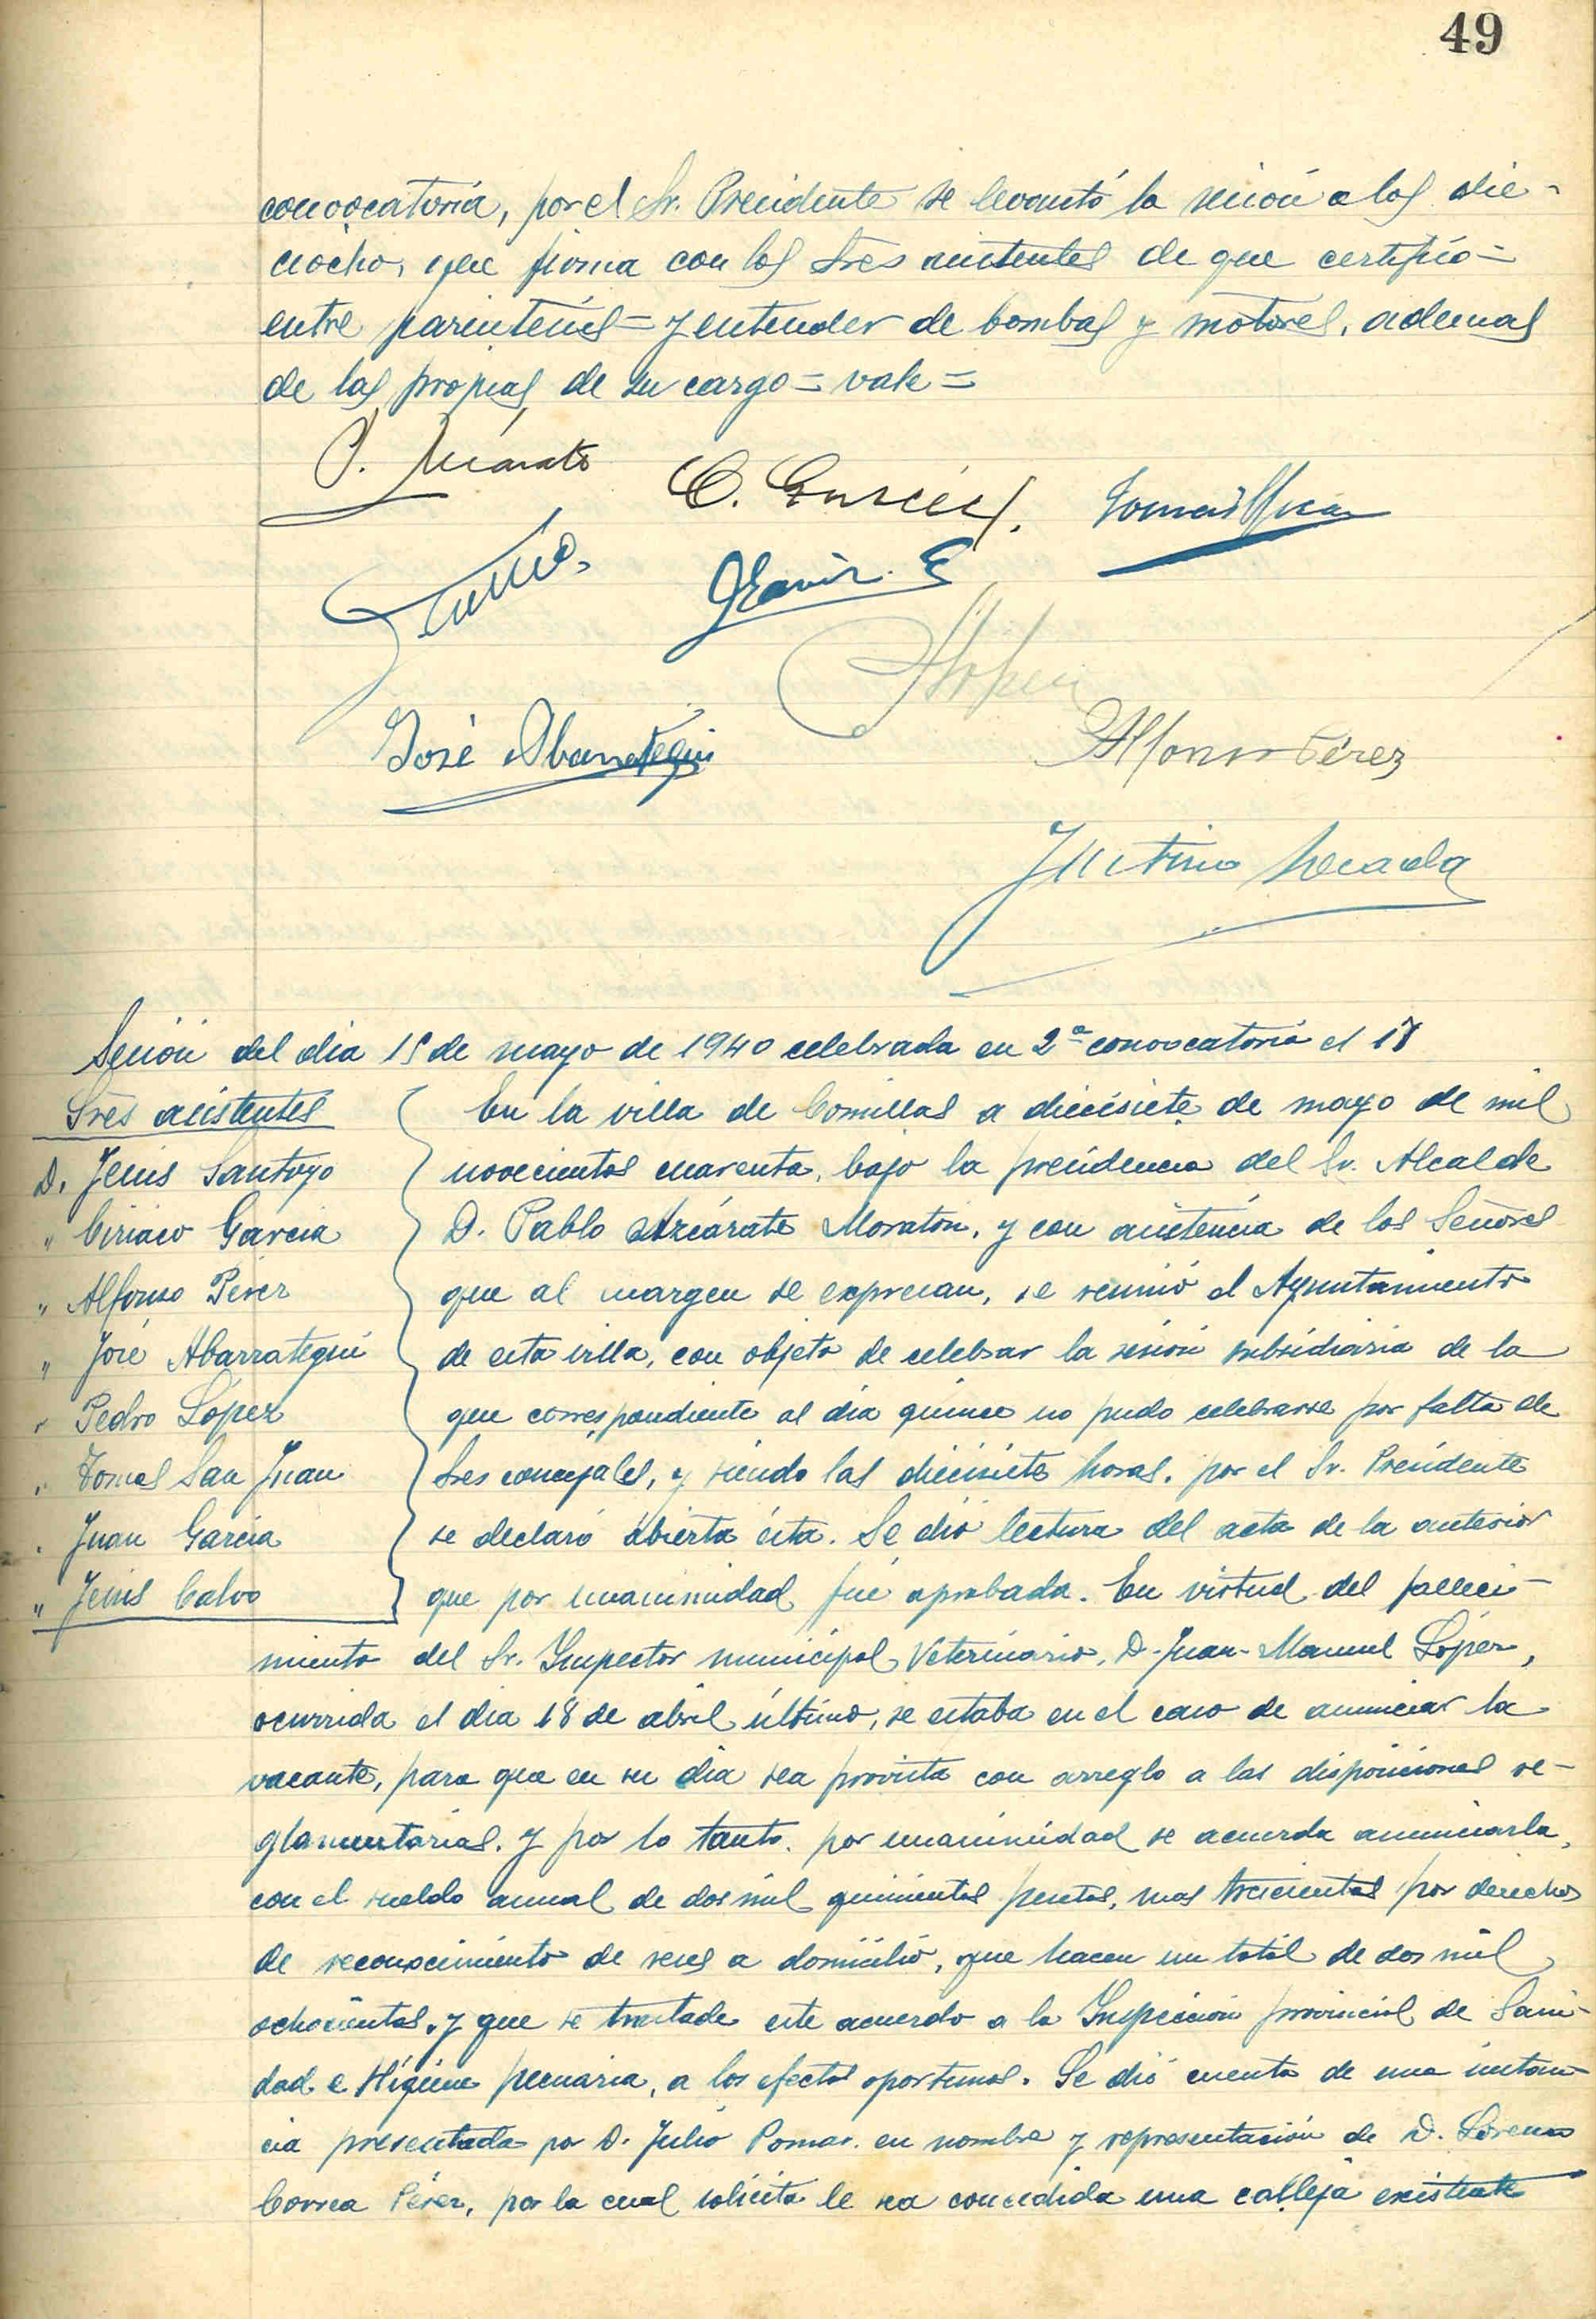 49
convocatoria, por el Sr. Presidente se levantó la sesión a las die-
ciocho, que firma con los Sres asistentes de que certifico =
entre paréntesis = y entender de bombas y motores, ademas
de las propias de su cargo = vale =
P. Azcárate
C. García
Tomás S Juan
J Garcia
PLópez
José Abarrategui
Alfonso Pérez
Justino
Sesión del dia 15 de mayo de 1940 celebrada en 2ª convocatoria el 17
Sres asistentes
D. Jesús Santoyo
" Ciriaco Garcia
" Alfonso Perez
" José Abarrategui
" Pedro López
" Tomas San Juan
" Juan García
" Jesús Calvo
En la villa de Comillas a diecisiete de mayo de mil
novecientos cuarenta, bajo la presidencia del Sr. Alcalde
D. Pablo Azcárate Moraton, y con asistencia de los Señores
que al margen se expresan, se reunió el Ayuntamiento
de esta villa, con objeto de celebrar la sesión subsidiaria de la
que correspondiente al día quince no pudo celebrarse por falta de
Sres concejales, y siendo las diecisiete horas, por el Sr. Presidente
se declaró abierta ésta. Se dió lectura del acta de la anterior
que por unanimidad fué aprobada. En virtud del falleci-
miento del Sr. Inspector municipal Veterinario, D. Juan-Manuel López,
ocurrida el dia 18 de abril último, se estaba en el caso de anunciar la
vacante, para que en su dia sea provista con arreglo a las disposiciones re-
glamentarias, y por lo tanto, por unanimidad se acuerda anunciarla,
con el sueldo anual de dos mil quinientas pesetas, mas trescientas por derechos
de reconocimiento de reses a domicilio, que hacen un total de dos mil
ochocientas, y que se traslade este acuerdo a la Inspección provincial de Sani-
dad e Higiene pecuaria, a los efectos oportunos. Se dió cuenta de una instan-
cia presentada por D. Julio Pomar en nombre y representación de D. Lorenzo
Correa Pérez, por la cual solicita le sea concedida una calleja existente